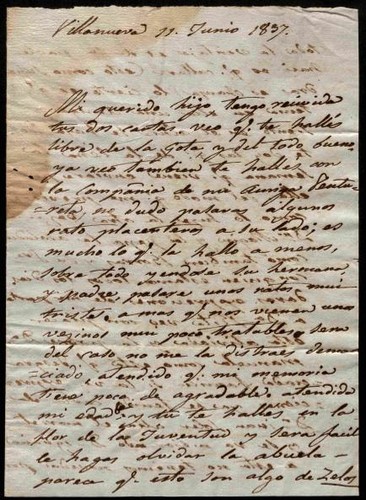 Villanueva 11 Junio 1837.
Mi querido hijo tengo recivida
tus dos cartas, veo q.e te halles
libre de la Gota, y del todo bueno,
ya veo tambien te hallas con
la Compañia de mi Amiga Ventu-
-reta, no dudo pasaras algunos
rato placenteros a su lado; es
mucho lo q.e la hallo a menos,
sobre todo yendose su hermano,
y padre, pasare unos ratos mui
tristes, a mas q.e nos vienen unos
vezinos mui poco tratables,
del rato no me la distraes dema-
-ciado, atendido q.e mi memoria
tiene poco de agradable, atendida
mi edad, y tu te halles en la
flor de la Juventud y sera facil
la hagas olvidar la abuela-
parece q.e esto son algo de Zelos